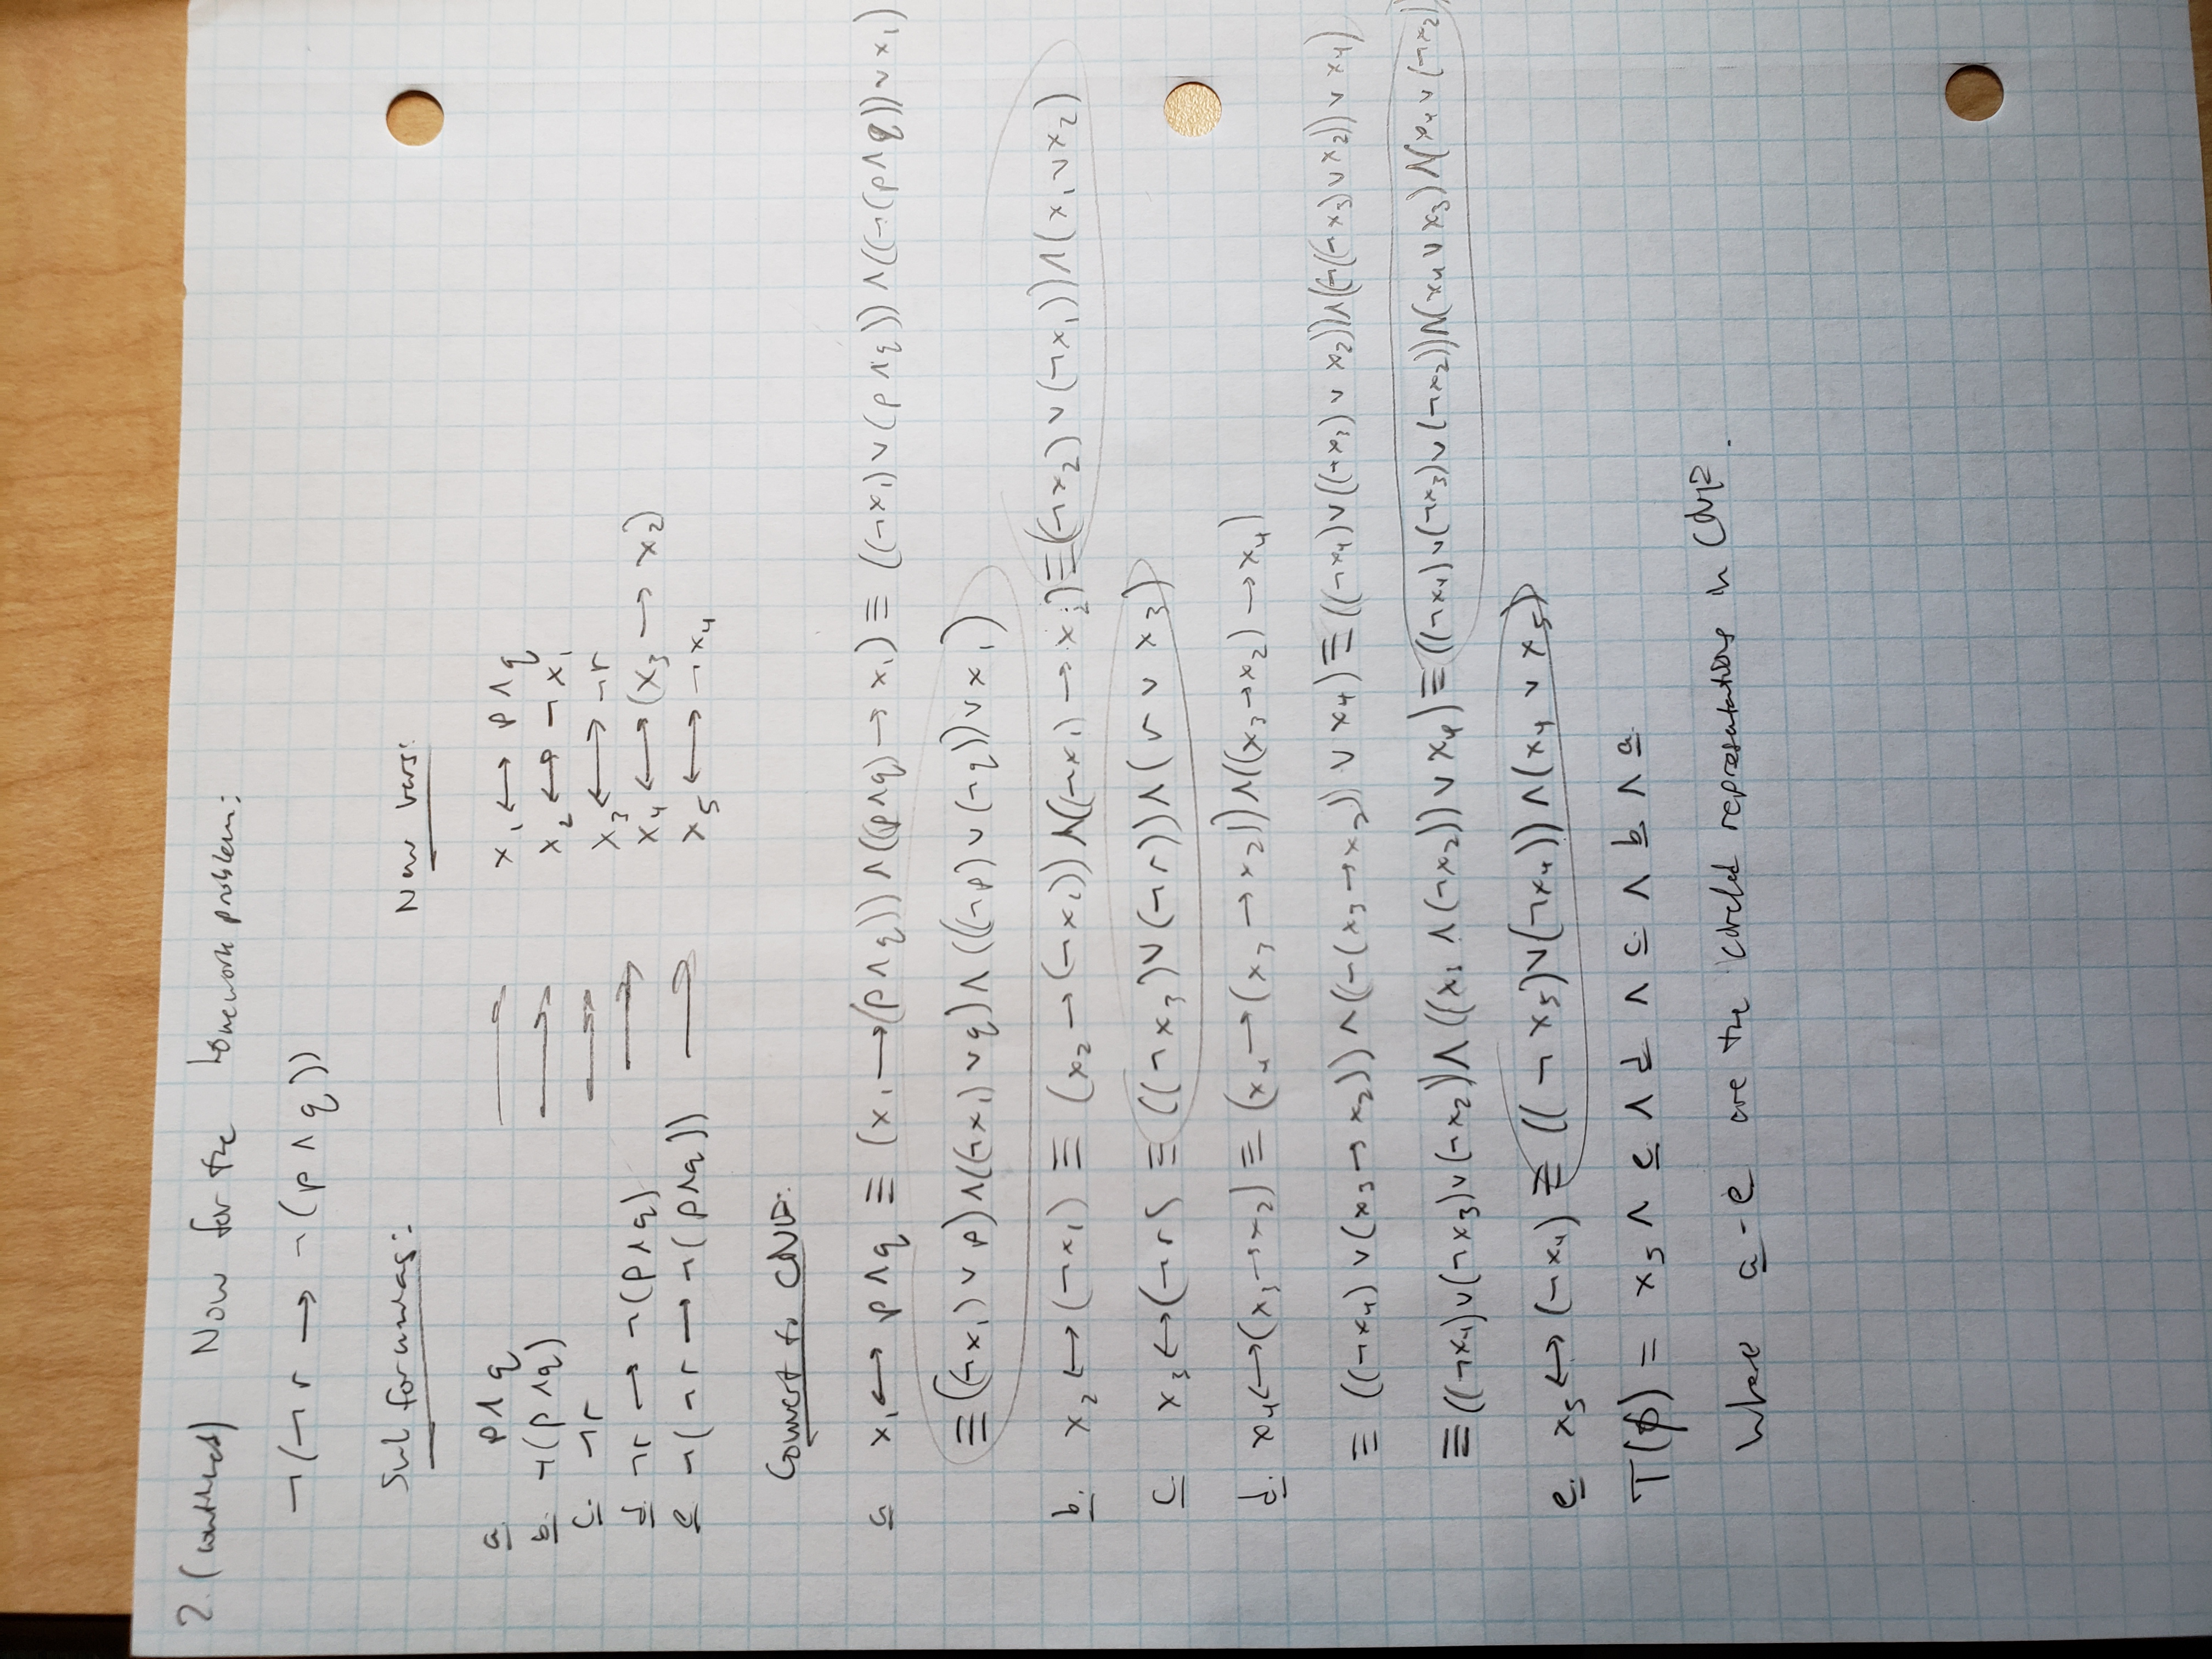 2. (continued) Now for the homework problem:
¬(¬r → ¬(p ∧ q))
Sub formulas: New vars:
a. p ∧ q → x₁ ↔ p ∧ q
b. ¬(p ∧ q) → x₂ ↔ ¬x₁
c. ¬r → x₃ ↔ ¬r
d. ¬r → ¬(p ∧ q) → x₄ ↔ (x₃ → x₂)
e. ¬(¬r → ¬(p ∧ q)) → x₅ ↔ ¬x₄
Convert to CNF:
a. x₁ ↔ p ∧ q ≡ (x₁ → (p ∧ q)) ∧ ((p ∧ q) → x₁) ≡ ((¬x₁) ∨ (p ∧ q)) ∧ ((¬(p ∧ q)) ∨ x₁)
≡ ((¬x₁) ∨ p) ∧ ((¬x₁) ∨ q) ∧ (((¬p) ∨ (¬q)) ∨ x₁)
b. x₂ ↔ (¬x₁) ≡ (x₂ → (¬x₁)) ∧ ((¬x₁) → x₂) ≡ ((¬x₂) ∨ (¬x₁)) ∧ (x₁ ∨ x₂)
c. x₃ ↔ (¬r) ≡ ((¬x₃) ∨ (¬r)) ∧ (r ∨ x₃)
d. x₄ ↔ (x₃ → x₂) ≡ (x₄ → (x₃ → x₂)) ∧ ((x₃ → x₂) → x₄)
≡ ((¬x₄) ∨ (x₃ → x₂)) ∧ (¬(x₃ → x₂)) ∨ x₄) ≡ ((¬x₄) ∨ ((¬x₃) ∨ x₂)) ∧ (¬((¬x₃) ∨ x₂)) ∨ x₄)
≡ ((¬x₄) ∨ (¬x₃) ∨ (¬x₂)) ∧ ((x₃ ∧ (¬x₂)) ∨ x₄) ≡ ((¬x₄) ∨ (¬x₃) ∨ (¬x₂)) ∧ (x₄ ∨ x₃) ∧ (x₄ ∨ (¬x₂))
e. x₅ ↔ (¬x₄) ≡ ((¬x₅) ∨ (¬x₄)) ∧ (x₄ ∨ x₅)
T(ϕ) = x₅ ∧ e. ∧ d ∧ c. ∧ b ∧ a.
Where a - e are the circled representations in CNF.